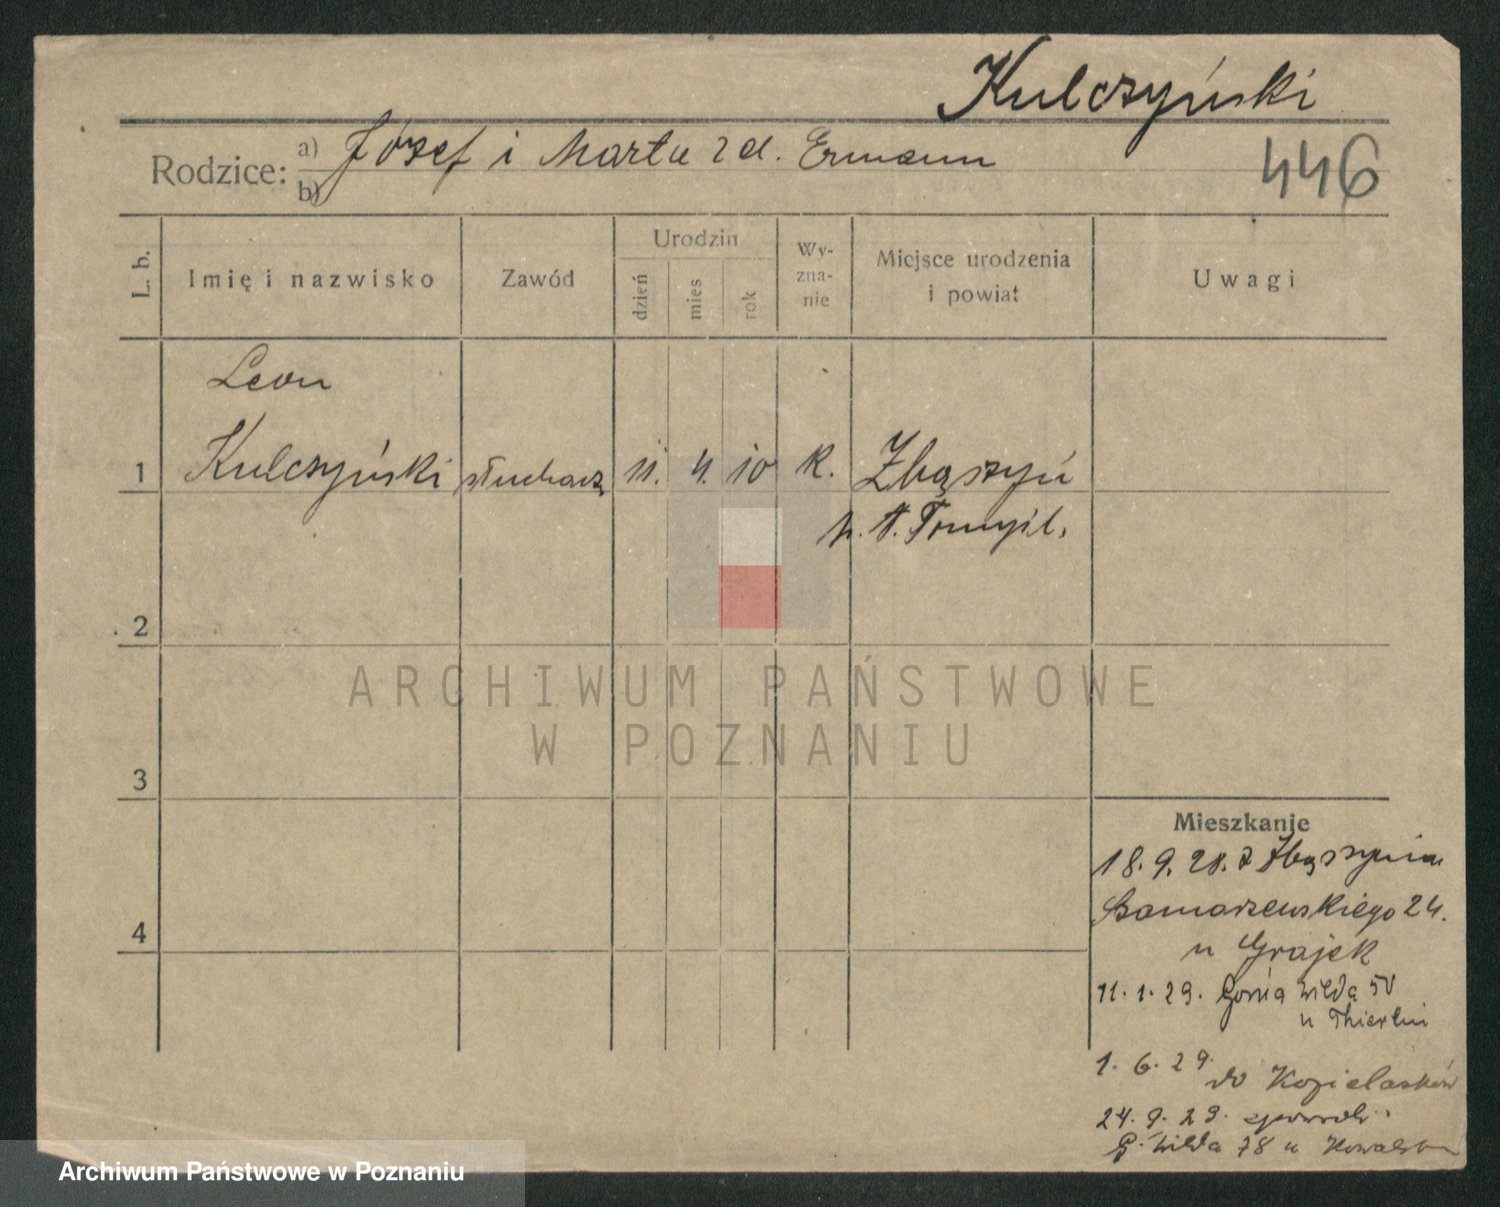 Kulczyński
Rodzice: a) Józef i Marta z d. Ermann
b)
446
L. b.
Imię i nazwisko
Zawód
Urodzin
dzień
mies
rok
Wy-
zna-
nie
Miejsce urodzenia
i powiat
Uwagi
Leon
1 Kulczyński słuchacz 11. 4. 10 k. Zbąszyń
n. t. Tomyśl.
2
3
4
ARCHIWUM PAŃSTWOWE
W POZNANIU
Mieszkanie
18. 9. 28. z Zbąszynia
Szamarzewskiego 24.
u Grajek
11. 1. 29. Górna Wilda 50
u
1. 6. 29. do
24. 9. 29.
G. Wilda 78 u
Archiwum Państwowe w Poznaniu